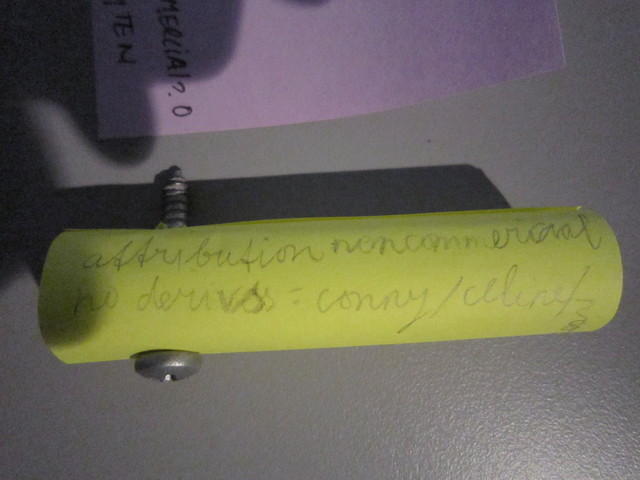 MERCIAL?.O
TEN
attribution noncommercial
no derivs = conny/celine/